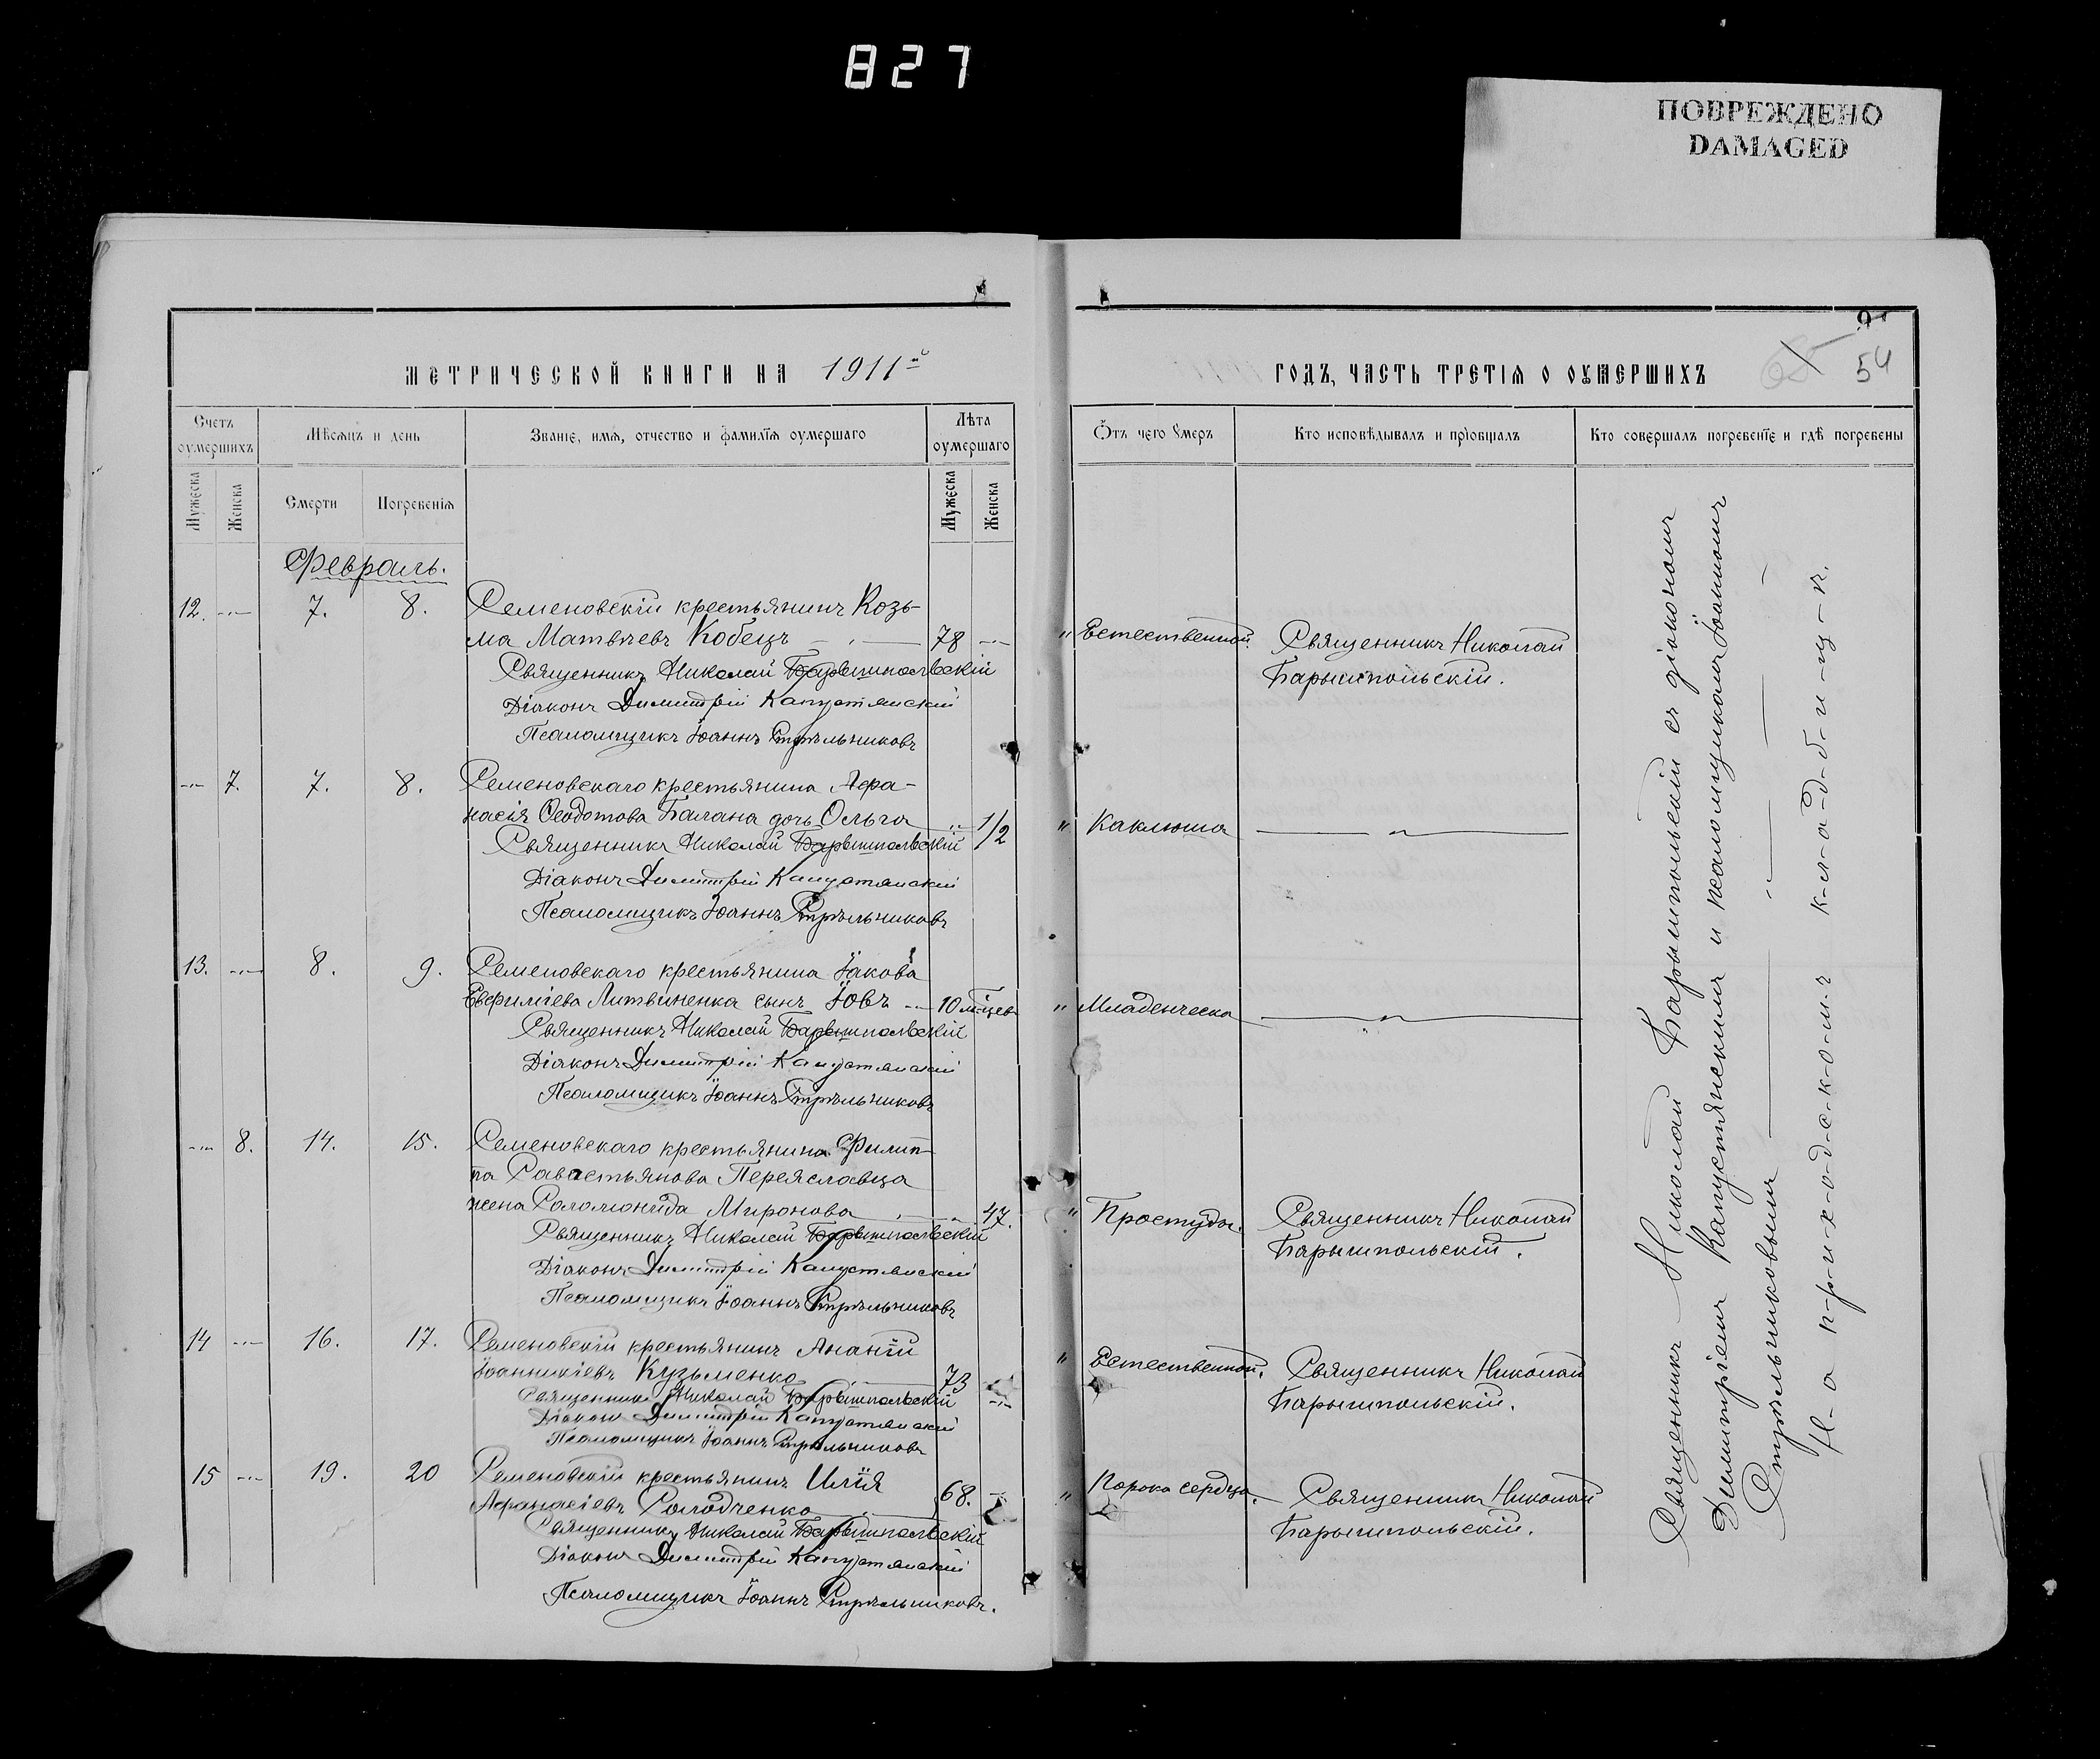 827
ПОВРЕЖДЕНО
DAMAGED
МЕТРИЧЕСКОЙ КНИГИ НА 1911й
ГОДЪ, ЧАСТЬ ТРЕТІЯ О ОУМЕРШИХЪ
54
Счетъ оумершихъ
Мѣсяцъ и день
Званіе, имя, отчество и фамилія оумершаго
Лѣта оумершаго
Отъ чего умеръ
Кто исповѣдывалъ и пріобщалъ
Кто совершалъ погребеніе и гдѣ погребены
Мужеска
Женска
Смерти
Погребенія
Мужеска
Женска
Февраль.
12. 7. 8. Семеновскій крестьянинъ Козь-
ма Матвѣевъ Кобецъ 78 " Естественной. Священникъ Николай
Барышпольскій.
Священникъ Николай Барышпольскій
Діаконъ Димитрій Капустянскій
Псаломщикъ Іоаннъ Стрѣльниковъ
7. 7. 8. Семеновскаго крестьянина Афа-
насія Ѳеодотова Балана дочь Ольга 1/2 " Каклюша
Священникъ Николай Барышпольскій
Діаконъ Димитрій Капустянскій
Псаломщикъ Іоаннъ Стрѣльниковъ
13. 8. 9. Семеновскаго крестьянина Іакова
Евфиміева Литвиненка сынъ Іовъ 10 мѣсцевъ " Младенческа
Священникъ Николай Барышпольскій
Діаконъ Димитрій Капустянскій
Псаломщикъ Іоаннъ Стрѣльниковъ
8. 14. 15. Семеновскаго крестьянина Филип-
па Савастьянова Переяславца
жена Соломонида Миронова 47. " Простуды. Священникъ Николай
Барышпольскій.
Священникъ Николай Барышпольскій
Діаконъ Димитрій Капустянскій
Псаломщикъ Іоаннъ Стрѣльниковъ
14 16. 17. Семеновскій крестьянинъ Ананій
Іоанникіевъ Кузьменко 73 " Естественной. Священникъ Николай
Барышпольскій.
Священникъ Николай Барышпольскій
Діаконъ Димитрій Капустянскій
Псаломщикъ Іоаннъ Стрѣльниковъ
15 19. 20 Семеновскій крестьянинъ Илія
Афанасіевъ Солодченко 68. " Порока сердца. Священникъ Николай
Барышпольскій.
Священникъ Николай Барышпольскій
Діаконъ Димитрій Капустянскій
Псаломщикъ Іоаннъ Стрѣльниковъ.
Священникъ Николай Барышпольскій съ діакономъ
Димитріемъ Капустянскимъ и псаломщикомъ Іоанномъ
Стрѣльниковымъ
Н-а п-р-и-х-о-д-с-к-о-м-ъ к-л-а-д-б-и-щ-ѣ.